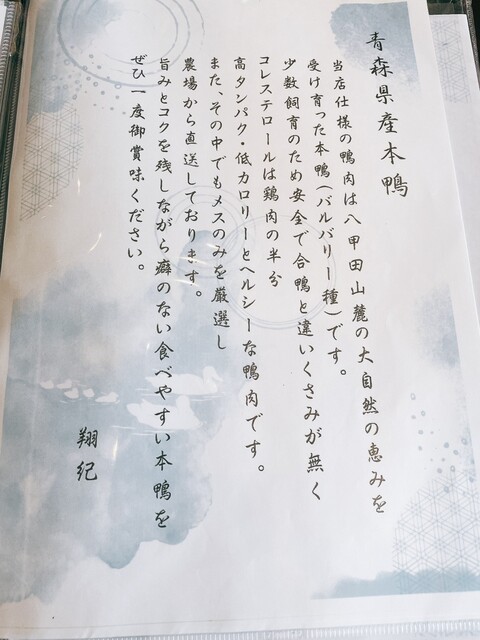 青森県産本鴨
当店仕様の鴨肉は八甲田山麓の大自然の恵みを
受け育った本鴨(バルバリー種)です。
少数飼育のため安全で合鴨と違いくさみが無く
コレステロールは鶏肉の半分
高タンパク・低カロリーとヘルシーな鴨肉です。
また、その中でもメスのみを厳選し
農場から直送しております。
旨みとコクを残しながら癖のない食べやすい本鴨を
ぜひ一度御賞味ください。
翔紀